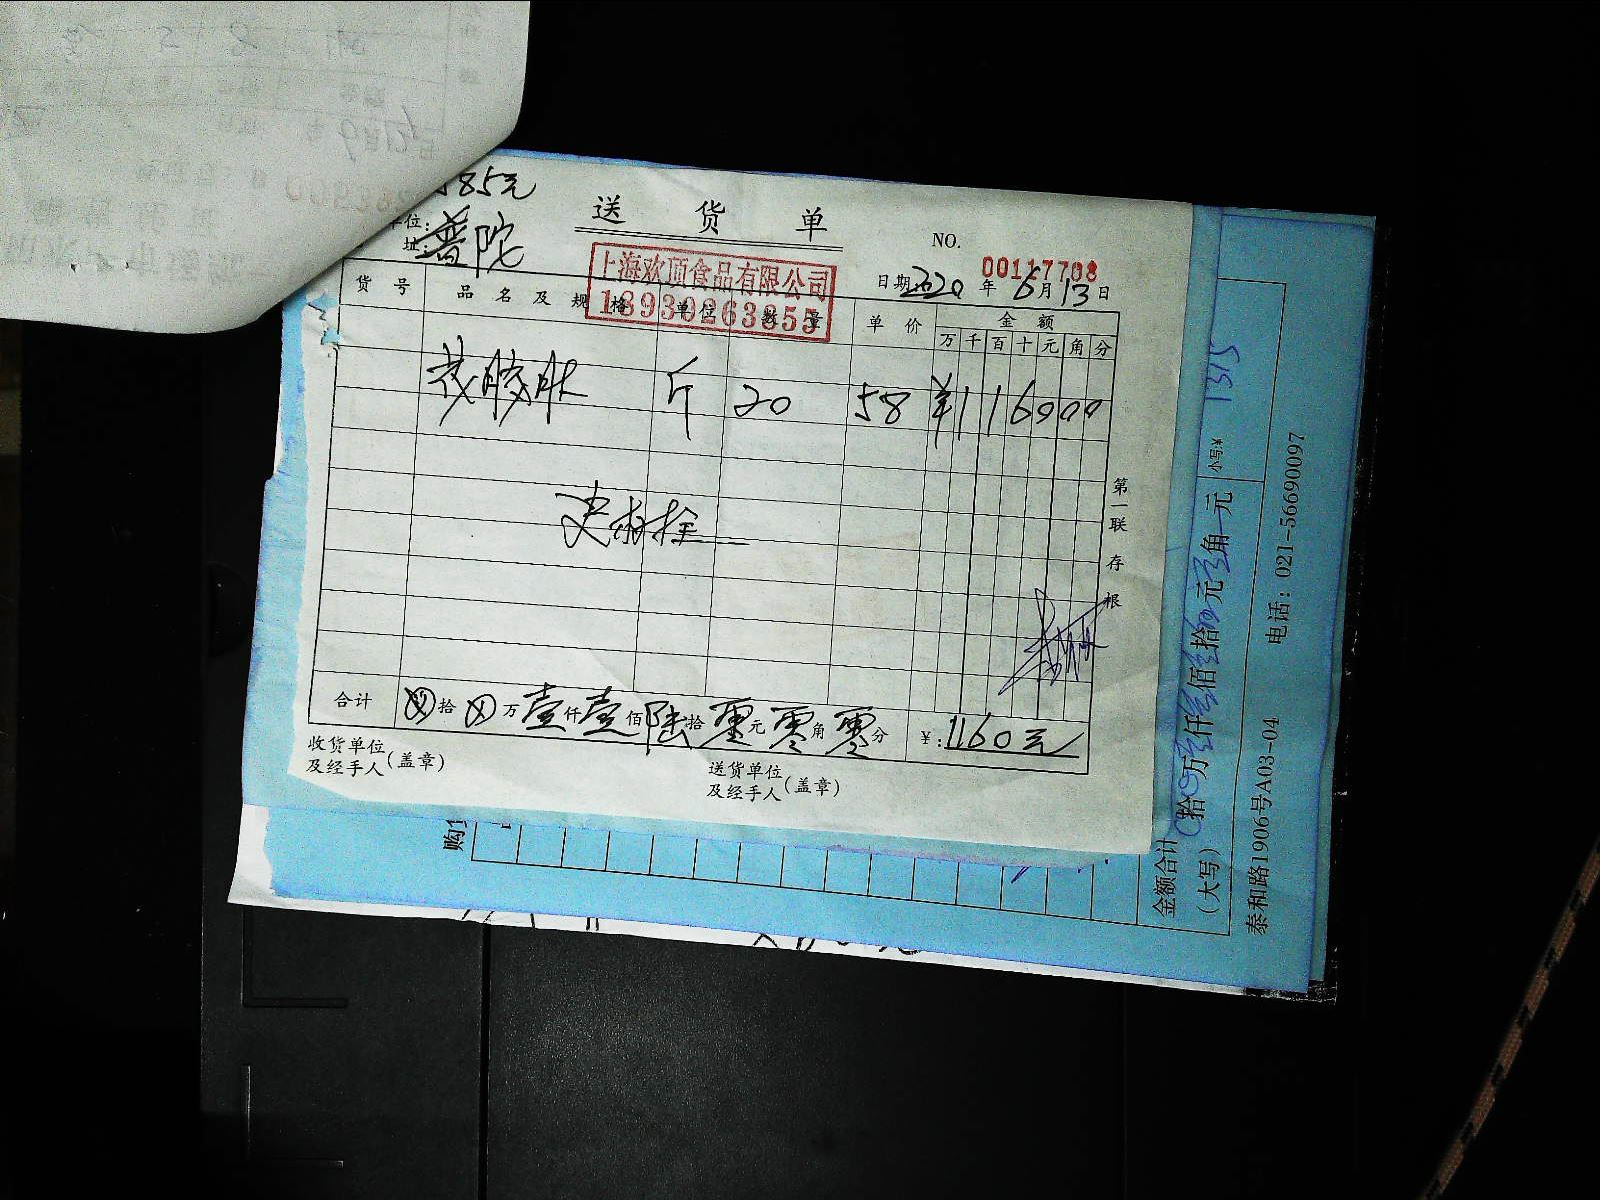 585元
送货单
单位:
址: 普陀
NO. 00117708
上海欢顶食品有限公司
18930263855
日期 2020 年 6 月 13 日
货号 品名及规格 单位 数量 单价 金额
万 千 百 十 元 角 分
花胶肚 斤 20 58 ¥116000
第一联 存根
合计 ⊗ 拾 ⊗ 万 壹 仟 壹 佰 陆 拾 零 元 零 角 零 分 ¥: 1160元
收货单位
及经手人(盖章)
送货单位
及经手人(盖章)
购
金额合计
(大写)
拾 万 仟 佰 拾 元 角
小写:¥ 1315
泰和路1906号A03-04 电话: 021-56690097